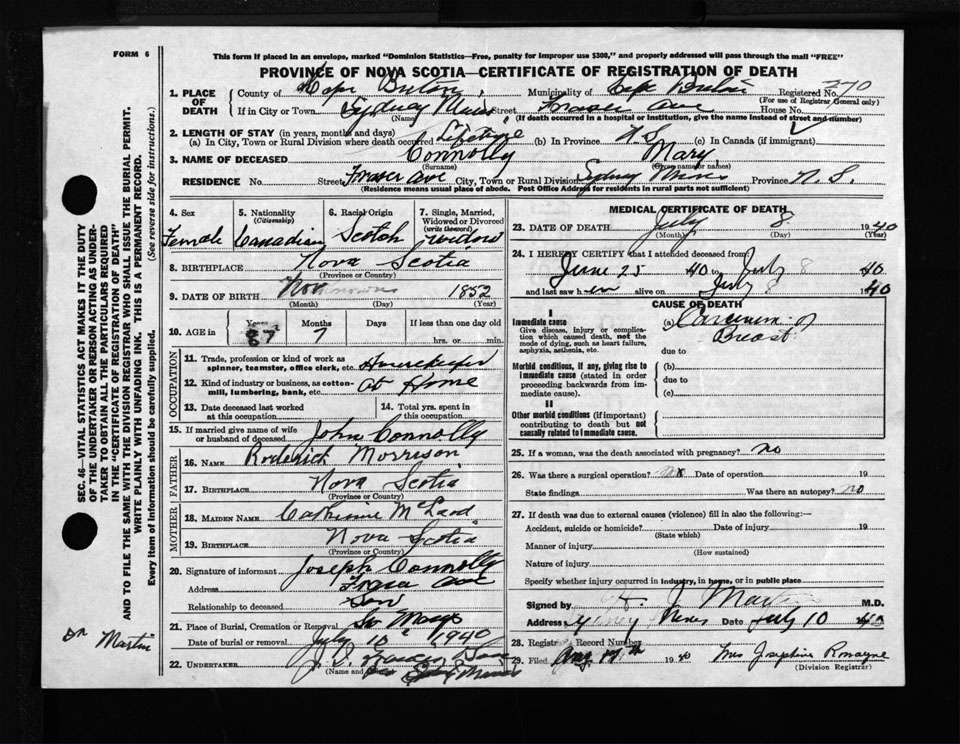 FORM 6
This form if placed in an envelope, marked "Dominion Statistics—Free, penalty for improper use $300," and properly addressed will pass through the mail "FREE"
PROVINCE OF NOVA SCOTIA—CERTIFICATE OF REGISTRATION OF DEATH
1. PLACE OF DEATH
County of Cape Breton, Municipality of Cape Breton Registered No. 270
(For use of Registrar General only)
If in City or Town Sydney Mines Street Fraser Ave House No.
(Name) (If death occurred in a hospital or institution, give the name instead of street and number)
2. LENGTH OF STAY (in years, months and days)
(a) In City, Town or Rural Division where death occurred Lifetime (b) In Province N.S. (c) In Canada (if immigrant)
3. NAME OF DECEASED Connolly Mary
(Surname) (Given name or names)
RESIDENCE No. Street Fraser Ave City, Town or Rural Division Sydney Mines Province N.S.
(Residence means usual place of abode. Post Office Address for residents in rural parts not sufficient)
4. Sex Female
5. Nationality (Citizenship) Canadian
6. Racial Origin Scotch
7. Single, Married, Widowed or Divorced (write the word) Widow
8. BIRTHPLACE Nova Scotia
(Province or Country)
9. DATE OF BIRTH Nov 1852
(Month) (Day) (Year)
10. AGE in Years 87 Months 7 Days If less than one day old hrs. or min.
OCCUPATION
11. Trade, profession or kind of work as spinner, teamster, office clerk, etc. Housekeeper
12. Kind of industry or business, as cotton-mill, lumbering, bank, etc. At Home
13. Date deceased last worked at this occupation
14. Total yrs. spent in this occupation
15. If married give name of wife or husband of deceased John Connolly
FATHER
16. NAME Roderick Morrison
17. BIRTHPLACE Nova Scotia
(Province or Country)
MOTHER
18. MAIDEN NAME Catherine McLeod
19. BIRTHPLACE Nova Scotia
(Province or Country)
20. Signature of informant Joseph Connolly
Address Fraser Ave
Relationship to deceased Son
21. Place of Burial, Cremation or Removal
Date of burial or removal July 10 1940
22. UNDERTAKER
(Name and
MEDICAL CERTIFICATE OF DEATH
23. DATE OF DEATH July 8 1940
(Month) (Day) (Year)
24. I HEREBY CERTIFY that I attended deceased from
June 25 40 to July 8 40
and last saw her alive on July 8 1940
CAUSE OF DEATH
I
Immediate cause
Give disease, injury or complication which caused death, not the mode of dying, such as heart failure, asphyxia, asthenia, etc.
(a) Carcinoma of Breast
due to
Morbid conditions, if any, giving rise to immediate cause (stated in order proceeding backwards from immediate cause).
(b)
due to
(c)
II
Other morbid conditions (if important) contributing to death but not causally related to immediate cause.
25. If a woman, was the death associated with pregnancy? no
26. Was there a surgical operation? no Date of operation 19
State findings Was there an autopsy? no
27. If death was due to external causes (violence) fill in also the following:—
Accident, suicide or homicide? Date of injury 19
(State which)
Manner of injury
(How sustained)
Nature of injury
Specify whether injury occurred in industry, in home, or in public place
Signed by H. J. Martin M.D.
Address Sydney Mines Date July 10 1940
28. Registrar's Record Number
29. Filed Aug 1940 Mrs Josephine Romayne
(Division Registrar)
SEC. 46—VITAL STATISTICS ACT MAKES IT THE DUTY OF THE UNDERTAKER OR PERSON ACTING AS UNDERTAKER TO OBTAIN ALL THE PARTICULARS REQUIRED IN THE "CERTIFICATE OF REGISTRATION OF DEATH" AND TO FILE THE SAME WITH THE DIVISION REGISTRAR WHO SHALL ISSUE THE BURIAL PERMIT.
WRITE PLAINLY WITH UNFADING INK. THIS IS A PERMANENT RECORD.
Every item of Information should be carefully supplied. (See reverse side for instructions.)
Dr Martin